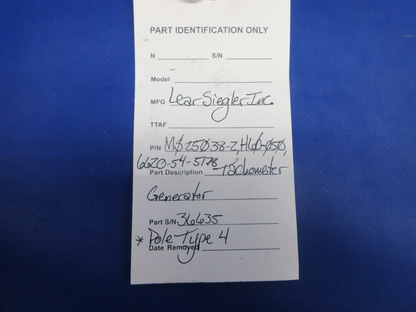 PART IDENTIFICATION ONLY
N S/N
Model
MFG Lear Siegler Inc.
TTAF
P/N MØ25Ø38-2, H60-Ø5Ø,
6620-54-5178
Part Description Tachometer
Generator
Part S/N 36635
* Pole Type 4
Date Removed